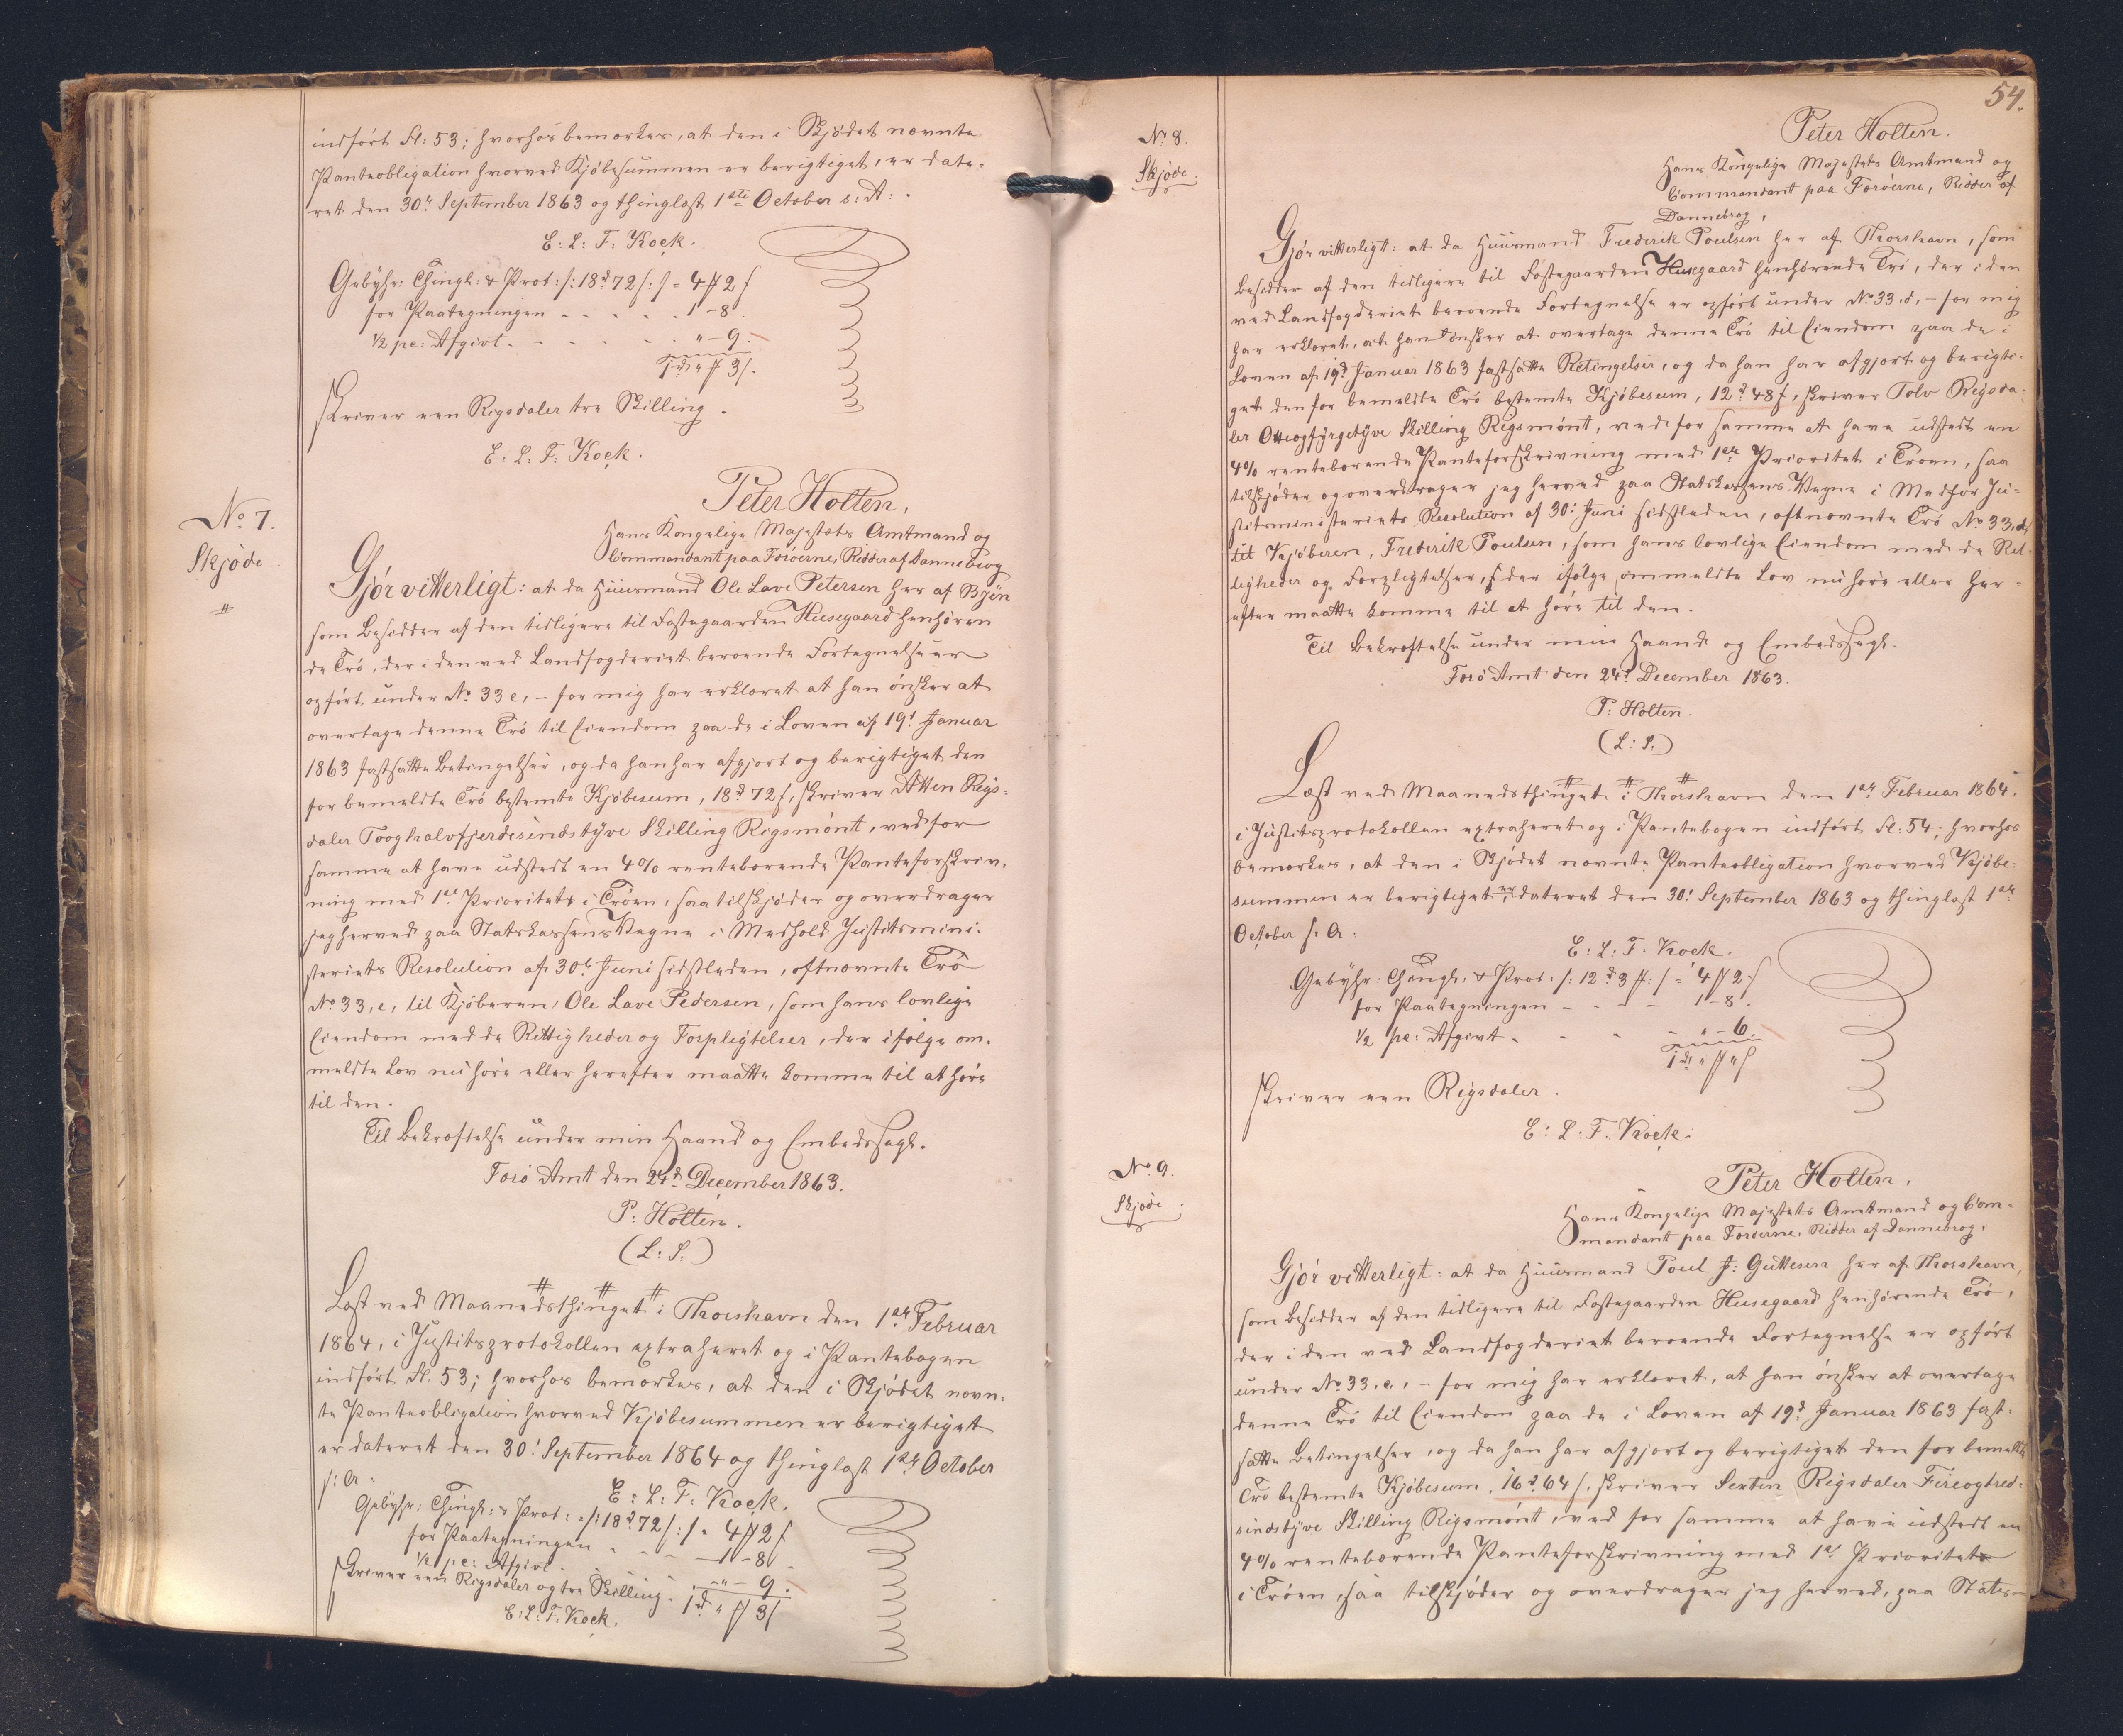 indført Fl: 53; hvorhos bemærkes, at den i Skjødet nævnte
Panteobligation hvorved Kjøbesummen er berigtiget, er date-
ret den 30te September 1863 og thinglæst 1ste October s: A:.
E: L: F: Kock.
Gebyhr: Thingl: & Prot: /: 18d 72 s :/ = 4 # 2 s
for Paategningen - - - - - 1 - 8
½ pc: Afgivt - - - - - " - 9.
1 d " # 3 s.
skriver een Rigsdaler tre Skilling.
E: L: F: Kock.
No 7.
Skjøde
#
Peter Holten,
Hans Kongelige Majestæts Amtmand og
Commandant paa Færøerne, Ridder af Dannebrog
Gjør vitterligt: at da Huusmand Ole Lave Petersen her af Byen
som Besidder af den tidligere til Fæstegaarden Husegaard henhøren
de Trø, der i den ved Landfogderiet beroende Fortegnelse er
opført under No 33 e, - for mig har erklæret at han ønsker at
overtage denne Trø til Eiendom paa de i Loven af 19d Januar
1863 fastsatte Betingelser, og da han har afgjort og berigtiget den
for bemeldte Trø bestemte Kjøbesum, 18d 72 s, skriver Atten Rigs-
daler Tooghalvfjerdesindstyve Skilling Rigsmønt, ved for
samme at have udstedt en 4% rentebærende Panteforskriv-
ning med 1ste Prioritet i Trøen, saa tilskjøder og overdrager
jeg herved paa Statskassens Vegne i Medhold Justitsmini-
steriets Resolution af 30te Juni sidstleden, oftnævnte Trø
No 33, e, til Kjøberen, Ole Lave Pedersen, som hans lovlige
Eiendom med de Rettigheder og Forpligtelser, der ifølge om-
meldte Lov nu høre eller herefter maatte komme til at høre
til den.
Til Bekræftelse under min Haand og Embedssegl.
Færø Amt den 24d December 1863.
P: Holten.
(L: S:)
Læst ved Maanedsthinget i Thorshavn den 1ste Februar
1864, i Justitsprotokollen extraheret og i Pantebogen
indført Fl. 53; hvorhos bemærkes, at den i Skjødet nævn-
te Panteobligation hvorved Kjøbesummen er berigtiget
er dateret den 30te September 1864 og thinglæst 1ste October
s: A:
E: L: F: Kock.
Gebyhr: Thingl: & Prot: /: 18d 72 s :/ = 4 # 2 s
for Paategningen - - - - 1 - 8 s
½ pc: Afgivt - - - " - 9.
skriver een Rigsdaler og tre Skilling. 1 d " # 3 s
E: L: F: Kock.
54.
No 8.
Skjøde.
Peter Holten.
Hans Kongelige Majestæts Amtmand og
Commandant paa Færøerne, Ridder af
Dannebrog,
Gjør vitterligt: at da Huusmand Frederik Poulsen her af Thorshavn, som
Besidder af den tidligere til Fæstegaarden Husegaard henhørende Trø, der i den
ved Landfogderiet beroende Fortegnelse er opført under No 33, d, - for mig
har erklæret, at han ønsker at overtage denne Trø til Eiendom paa de i
Loven af 19d Januar 1863 fastsatte Betingelser, og da han har afgjort og berigti-
get den for bemeldte Trø bestemte Kjøbesum, 12d 48 s, skriver Tolv Rigsda-
ler Otteogfyrgetyve Skilling Rigsmønt, ved for samme at have udstedt en
4% rentebærende Panteforskrivning med 1ste Prioritet i Trøen, saa
tilskjøder og overdrager jeg herved paa Statskassens Vegne i Medfør Ju-
stitsministeriets Resolution af 30te Juni sidstleden, oftnævnte Trø No 33, d,
til Kjøberen, Frederik Poulsen, som hans lovlige Eiendom med de Ret-
tigheder og Forpligtelser, der ifølge ommeldte Lov nu høre eller her-
efter maatte komme til at høre til den.
Til Bekræftelse under min Haand og Embedssegl.
Færø Amt den 24d December 1863.
P: Holten.
(L: S:)
Læst ved Maanedsthinget i Thorshavn den 1ste Februar 1864.
i Justitsprotokollen extraheret og i Pantebogen indført Fl: 54; hvorhos
bemærkes, at den i Skjødet nævnte Panteobligation hvorved Kjøbe-
summen er berigtiget, er dateret den 30te September 1863 og thinglæst 1ste
October s: A:
E: L: F: Kock.
Gebyhr: Thingl: & Prot: /: 12d 3 # :/ = 4 # 2 s
for Paategningen - - - - 1 - 8.
½ pc: Afgivt - - - - " - 6.
1 d " # " s
skriver een Rigsdaler.
E: L: F: Kock.
No 9.
Skjøde.
Peter Holten,
Hans Kongelige Majestæts Amtmand og Com-
mandant paa Færøerne, Ridder af Dannebrog,
Gjør vitterligt: at da Huusmand Poul J: Guttesen her af Thorshavn,
som Besidder af den tidligere til Fæstegaarden Husegaard henhørende Trø,
der i den ved Landfogderiet beroende Fortegnelse er opført
under No 33, c, - for mig har erklæret, at han ønsker at overtage
denne Trø til Eiendom paa de i Loven af 19d Januar 1863 fast-
satte Betingelser, og da han har afgjort og berigtiget den for bemeldte
Trø bestemte Kjøbesum, 16d 64 s, skriver Sexten Rigsdaler Fireogtred-
sindstyve Skilling Rigsmønt, ved for samme at have udstedt en
4% rentebærende Panteforskrivning med 1ste Prioritet
i Trøen, saa tilskjøder og overdrager jeg herved, paa Stats-